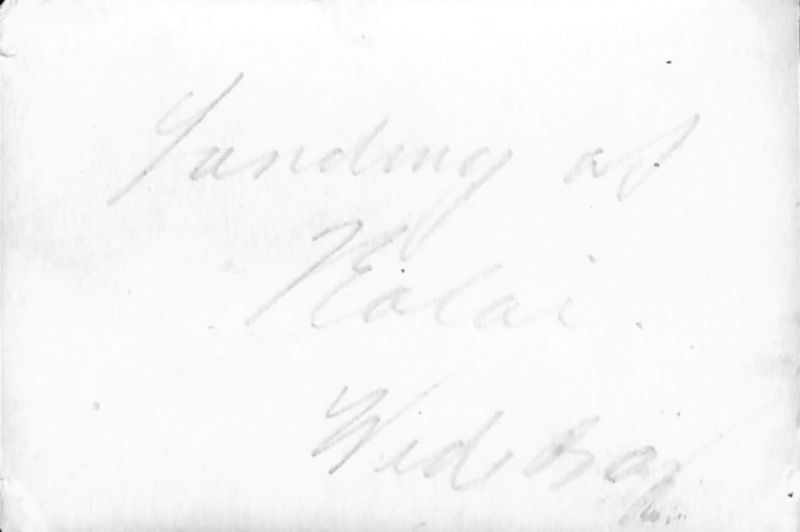 Landing at
Kolai.
Wide Bay